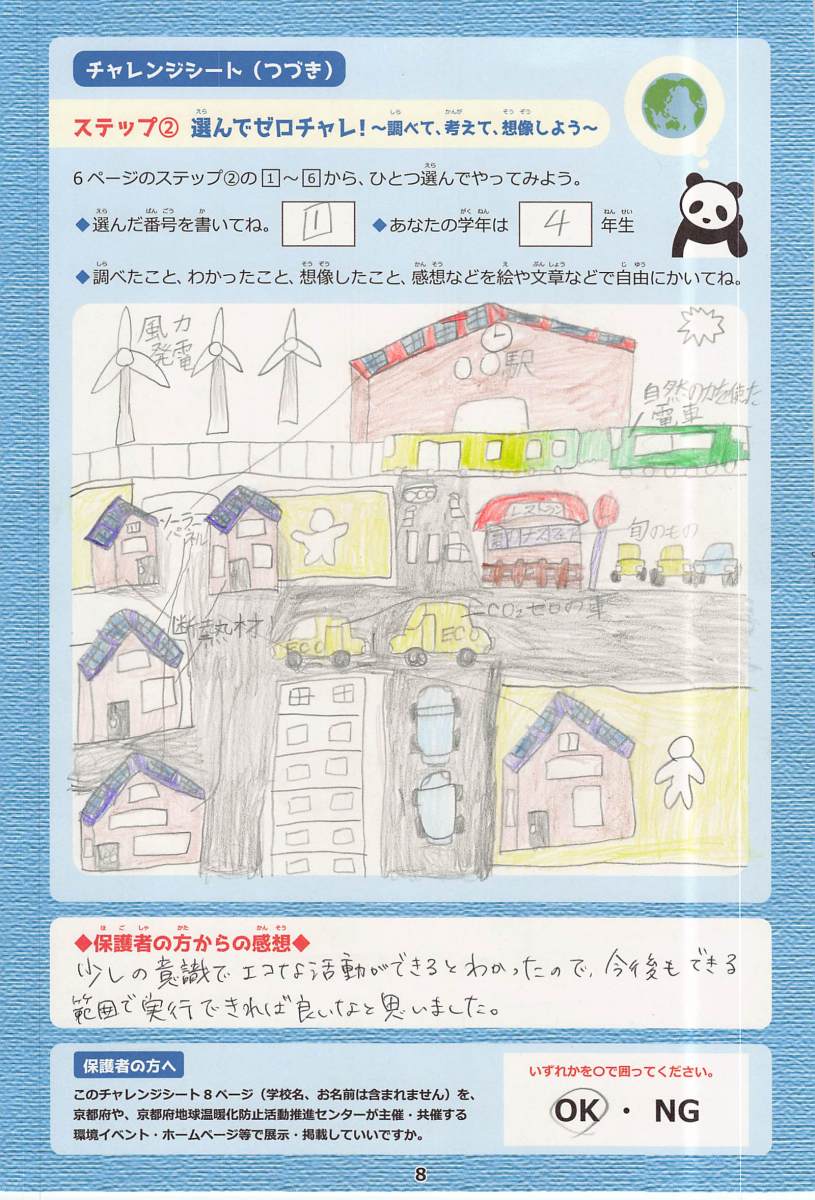 チャレンジシート（つづき）
ステップ② 選んでゼロチャレ！～調べて、考えて、想像しよう～
6ページのステップ②の1～6から、ひとつ選んでやってみよう。
◆選んだ番号を書いてね。 1 ◆あなたの学年は 4 年生
◆調べたこと、わかったこと、想像したこと、感想などを絵や文章などで自由にかいてね。
風力
発電
駅
自然の力を使った
電車
ソーラー
パネル
レストラン
旬のもの
断熱材
CO₂ゼロの車
ECO
ECO
◆保護者の方からの感想◆
少しの意識でエコな活動ができるとわかったので、今後もできる
範囲で実行できれば良いなと思いました。
保護者の方へ
このチャレンジシート8ページ（学校名、お名前は含まれません）を、
京都府や、京都府地球温暖化防止活動推進センターが主催・共催する
環境イベント・ホームページ等で展示・掲載していいですか。
いずれかを〇で囲ってください。
OK ・ NG
8